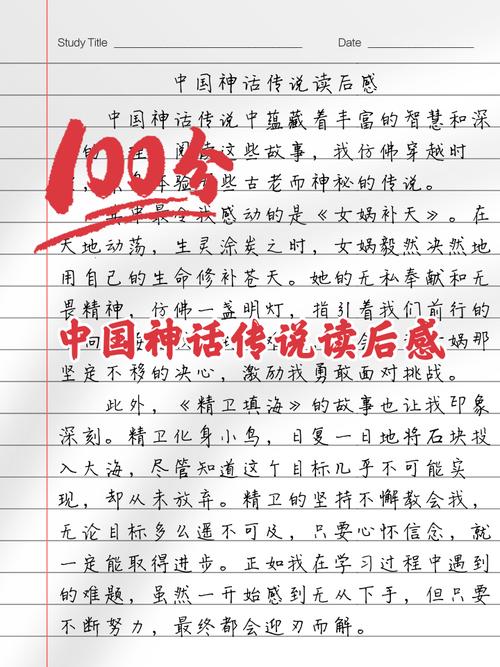 Study Title
Date
中国神话传说读后感
中国神话传说中蕴藏着丰富的智慧和深
理 阅读这些故事，我仿佛穿越时
体验 些古老而神秘的传说。
其中最令我感动的是《女娲补天》。在
天地动荡，生灵涂炭之时，女娲毅然决然地
用自己的生命修补苍天。她的无私奉献和无
畏精神，仿佛一盏明灯，指引着我们前行的
向 娲那
坚定不移的决心，激励我勇敢面对挑战。
此外，《精卫填海》的故事也让我印象
深刻。精卫化身小鸟，日复一日地将石块投
入大海，尽管知道这个目标几乎不可能实
现，却从未放弃。精卫的坚持不懈教会我，
无论目标多么遥不可及，只要心怀信念，就
一定能取得进步。正如我在学习过程中遇到
的难题，虽然一开始感到无从下手，但只要
不断努力，最终都会迎刃而解。
100分
中国神话传说读后感